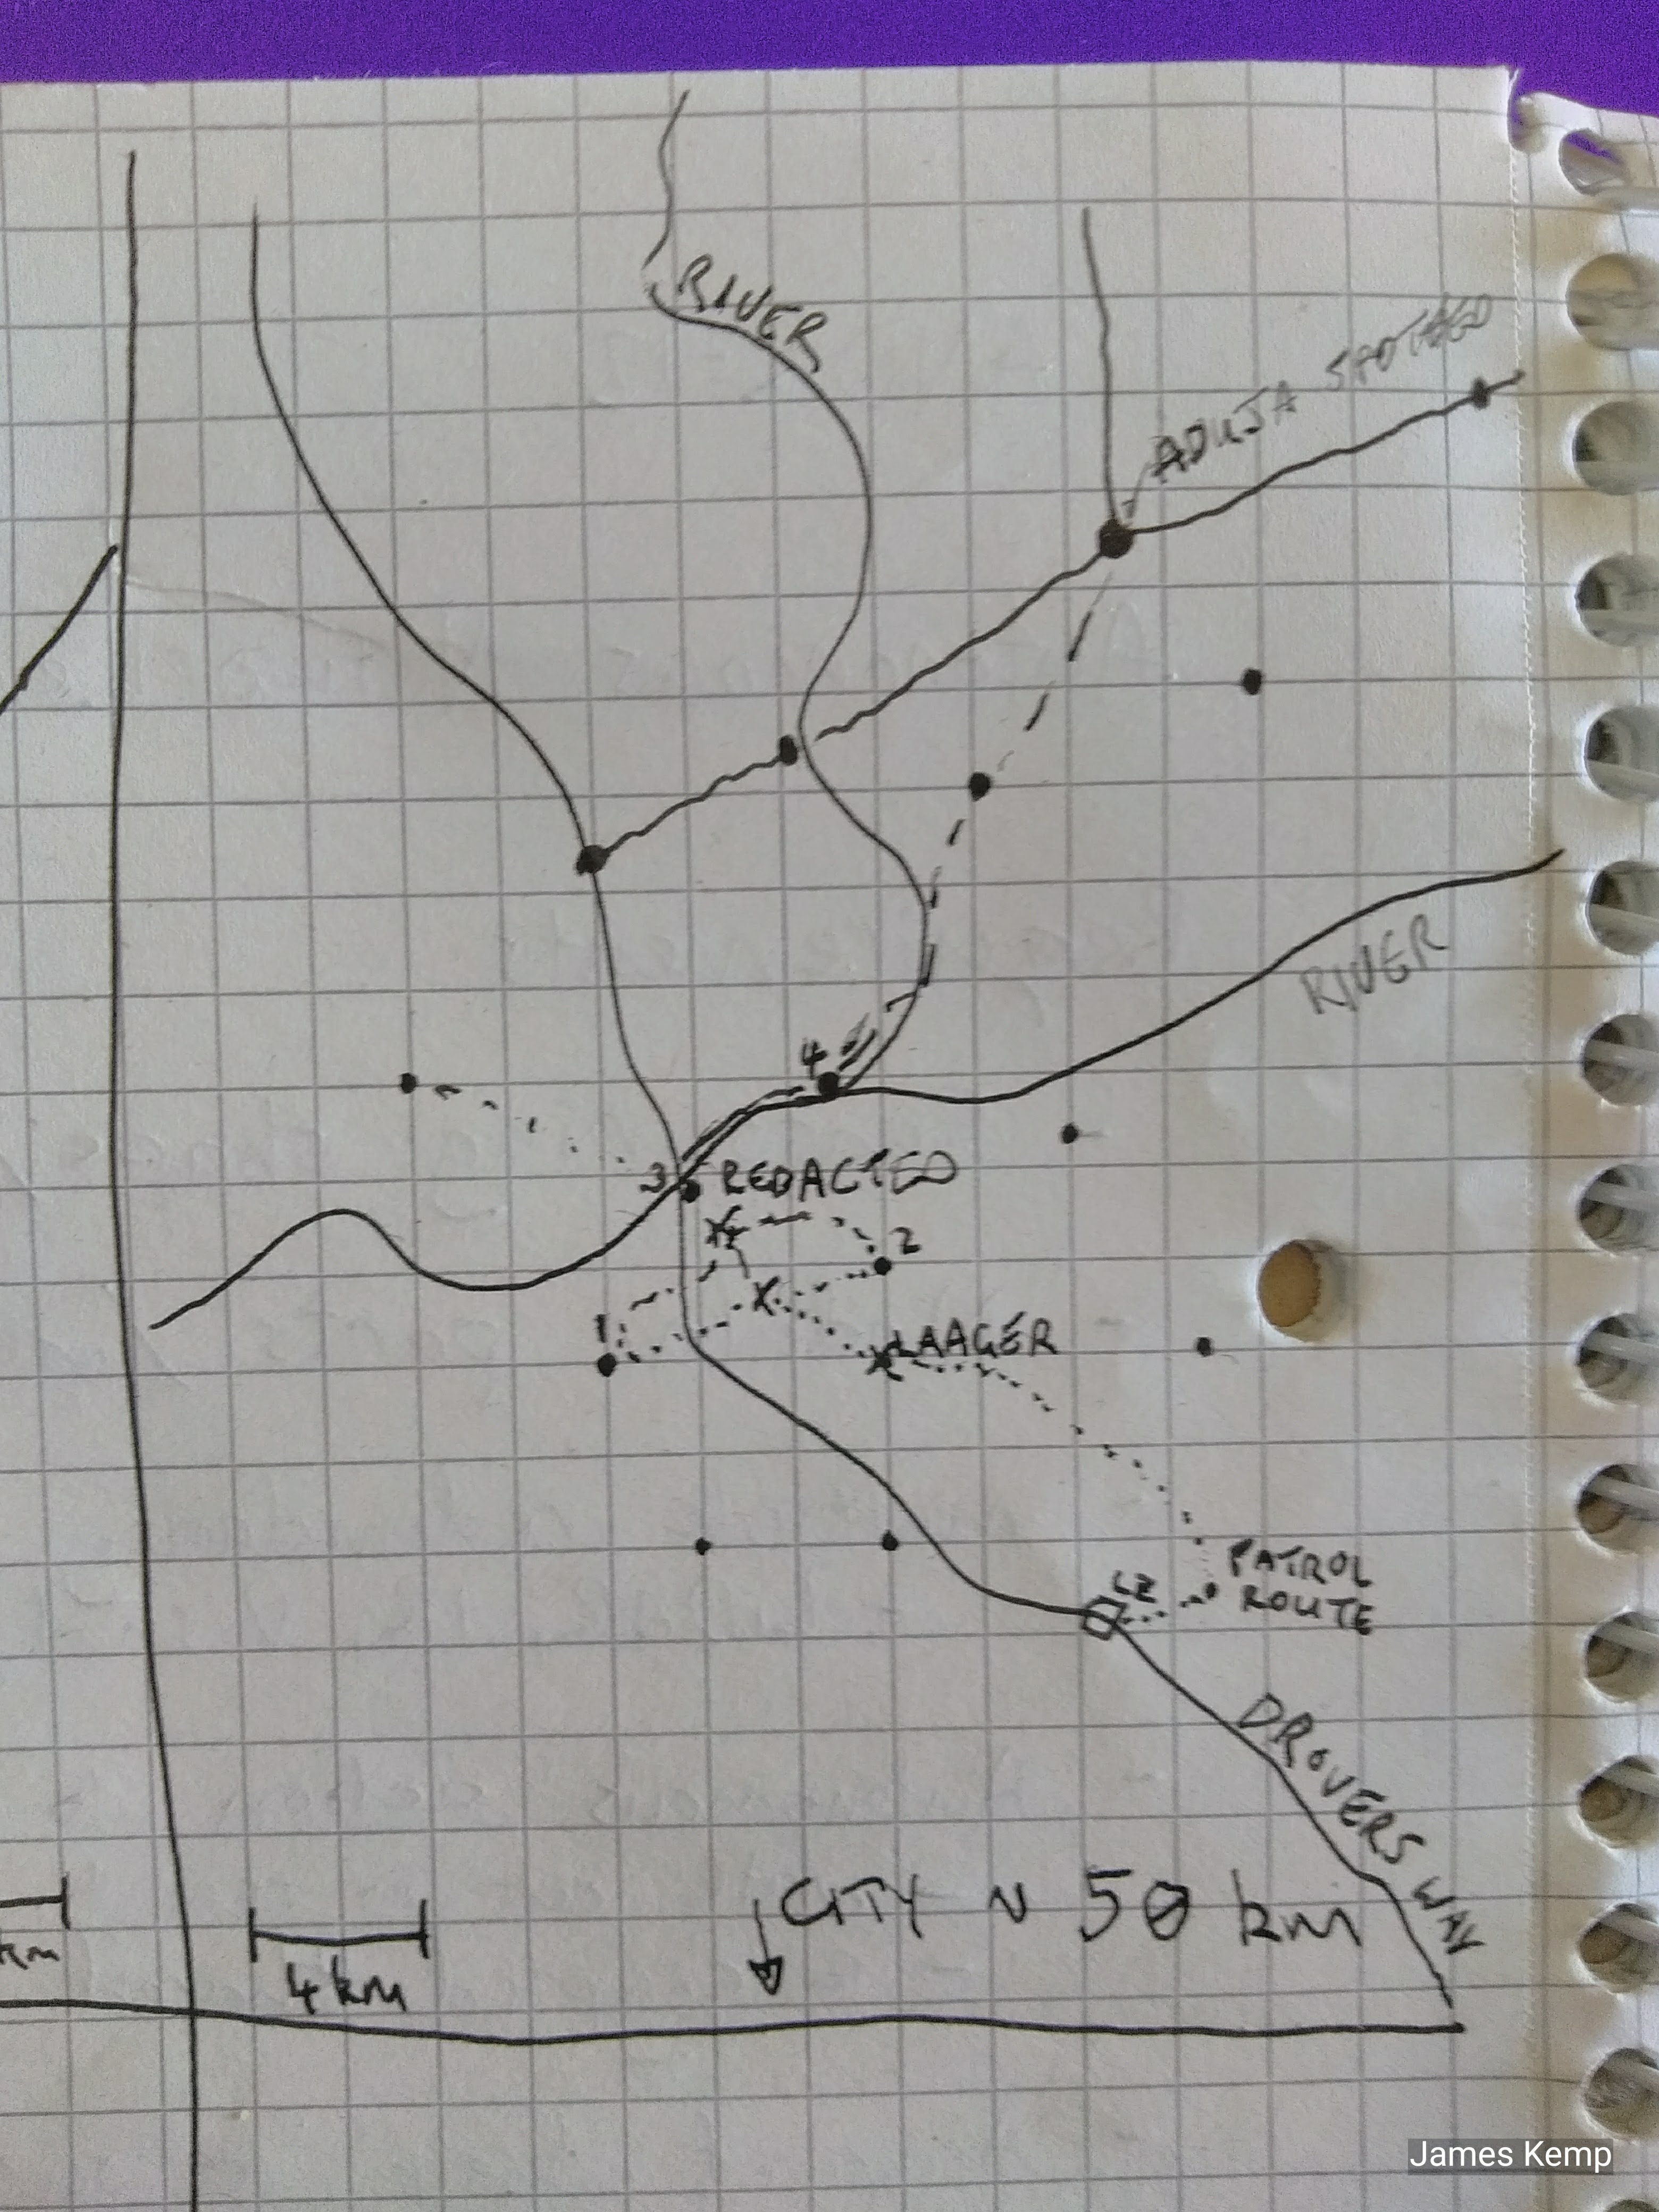 RIVER
ADUJA SPOTTED
RIVER
4
3 REDACTED
2
1
LAAGER
LZ
PATROL
ROUTE
DROVERS WAY
CITY ~ 50 km
km
4 km
James Kemp